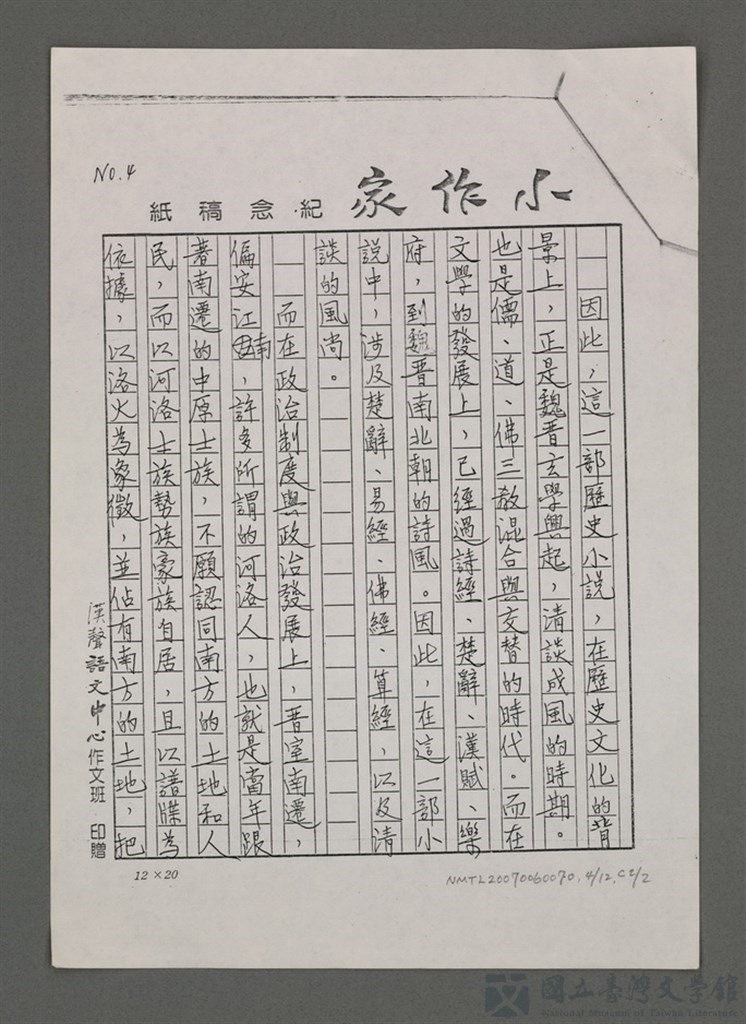 No.4
小作家
紀·念稿紙
因此，這一部歷史小說，在歷史文化的背
景上，正是魏晋玄學興起，清談成風的時期。
也是儒、道、佛三教混合與交替的時代。而在
文學的發展上，已經過詩經、楚辭、漢賦、樂
府，到魏晋南北朝的詩風。因此，在這一部小
說中，涉及楚辭、易經、佛經、算經，以及清
談的風尚。
而在政治制度與政治發展上，晋室南遷，
偏安江南，許多所謂的河洛人，也就是當年跟
著南遷的中原士族，不願認同南方的土地和人
民，而以河洛士族勢族豪族自居，且以譜牒為
依據，以洛火為象徵，並佔有南方的土地，把
漢聲語文中心作文班 印贈
12×20
NMTL20070060070.4/12.C2/2
國立臺灣文學館
National Museum of Taiwan Literature